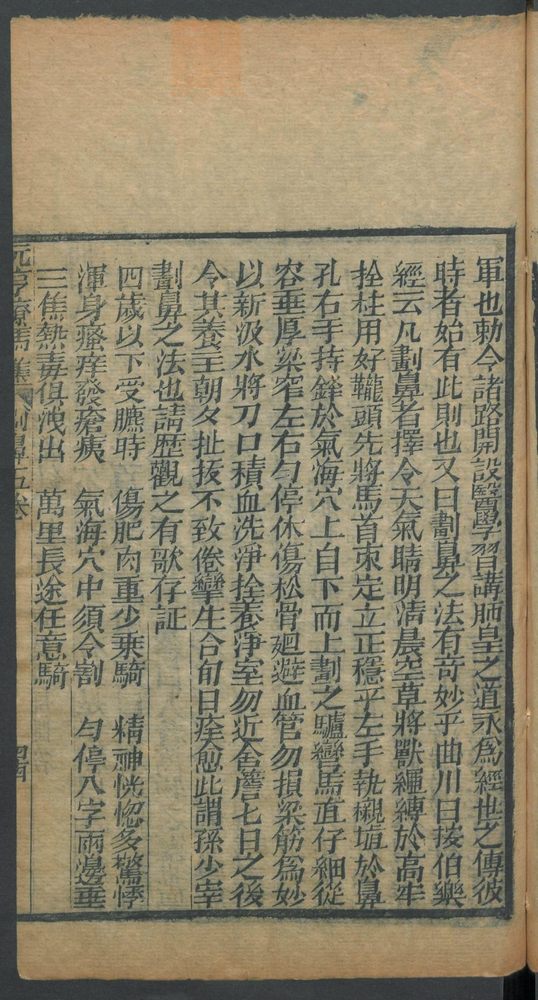 軍也勅令諸路開設醫學習講肺皇之道永爲經世之傳彼
時者始有此則也又曰劃鼻之法有奇妙乎曲川曰按伯樂
經云凡劃鼻者擇令天氣晴明清晨空草將獸繩縛於高牢
拴柱用好韂頭先將馬首束定立正穩平左手執襯填於鼻
孔右手持鋒於氣海穴上自下而上劃之驢彎馬直仔細從
容垂厚梁窄左右勻停休傷松骨廻避血管勿損梁筋爲妙
以新汲水將刀口積血洗淨拴養淨室勿近舍簷七日之後
令其養主朝夕扯拔不致倦攣生合旬日痊愈此謂孫少宰
劃鼻之法也請歷觀之有歌存証
四歲以下受臕時 傷肥肉重少乘騎 精神恍惚多驚悸
渾身瘙痒發瘡痍 氣海穴中須令割 勻停八字兩邊垂
三焦熱毒俱洩出 萬里長途任意騎
元亨療馬集 劃鼻 五卷